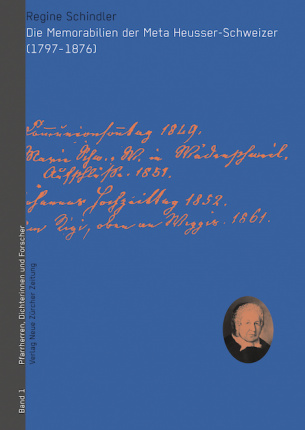 Regine Schindler
Die Memorabilien der Meta Heusser-Schweizer
(1797-1876)
Communionsonntag 1849.
Marie Schw., W. in Wädenschweil,
Aufschlüße. 1851.
Hochzeittag 1852.
Rigi, oben an Weggis. 1861.
Pfarrherren, Dichterinnen und Forscher
Verlag Neue Zürcher Zeitung
Band 1